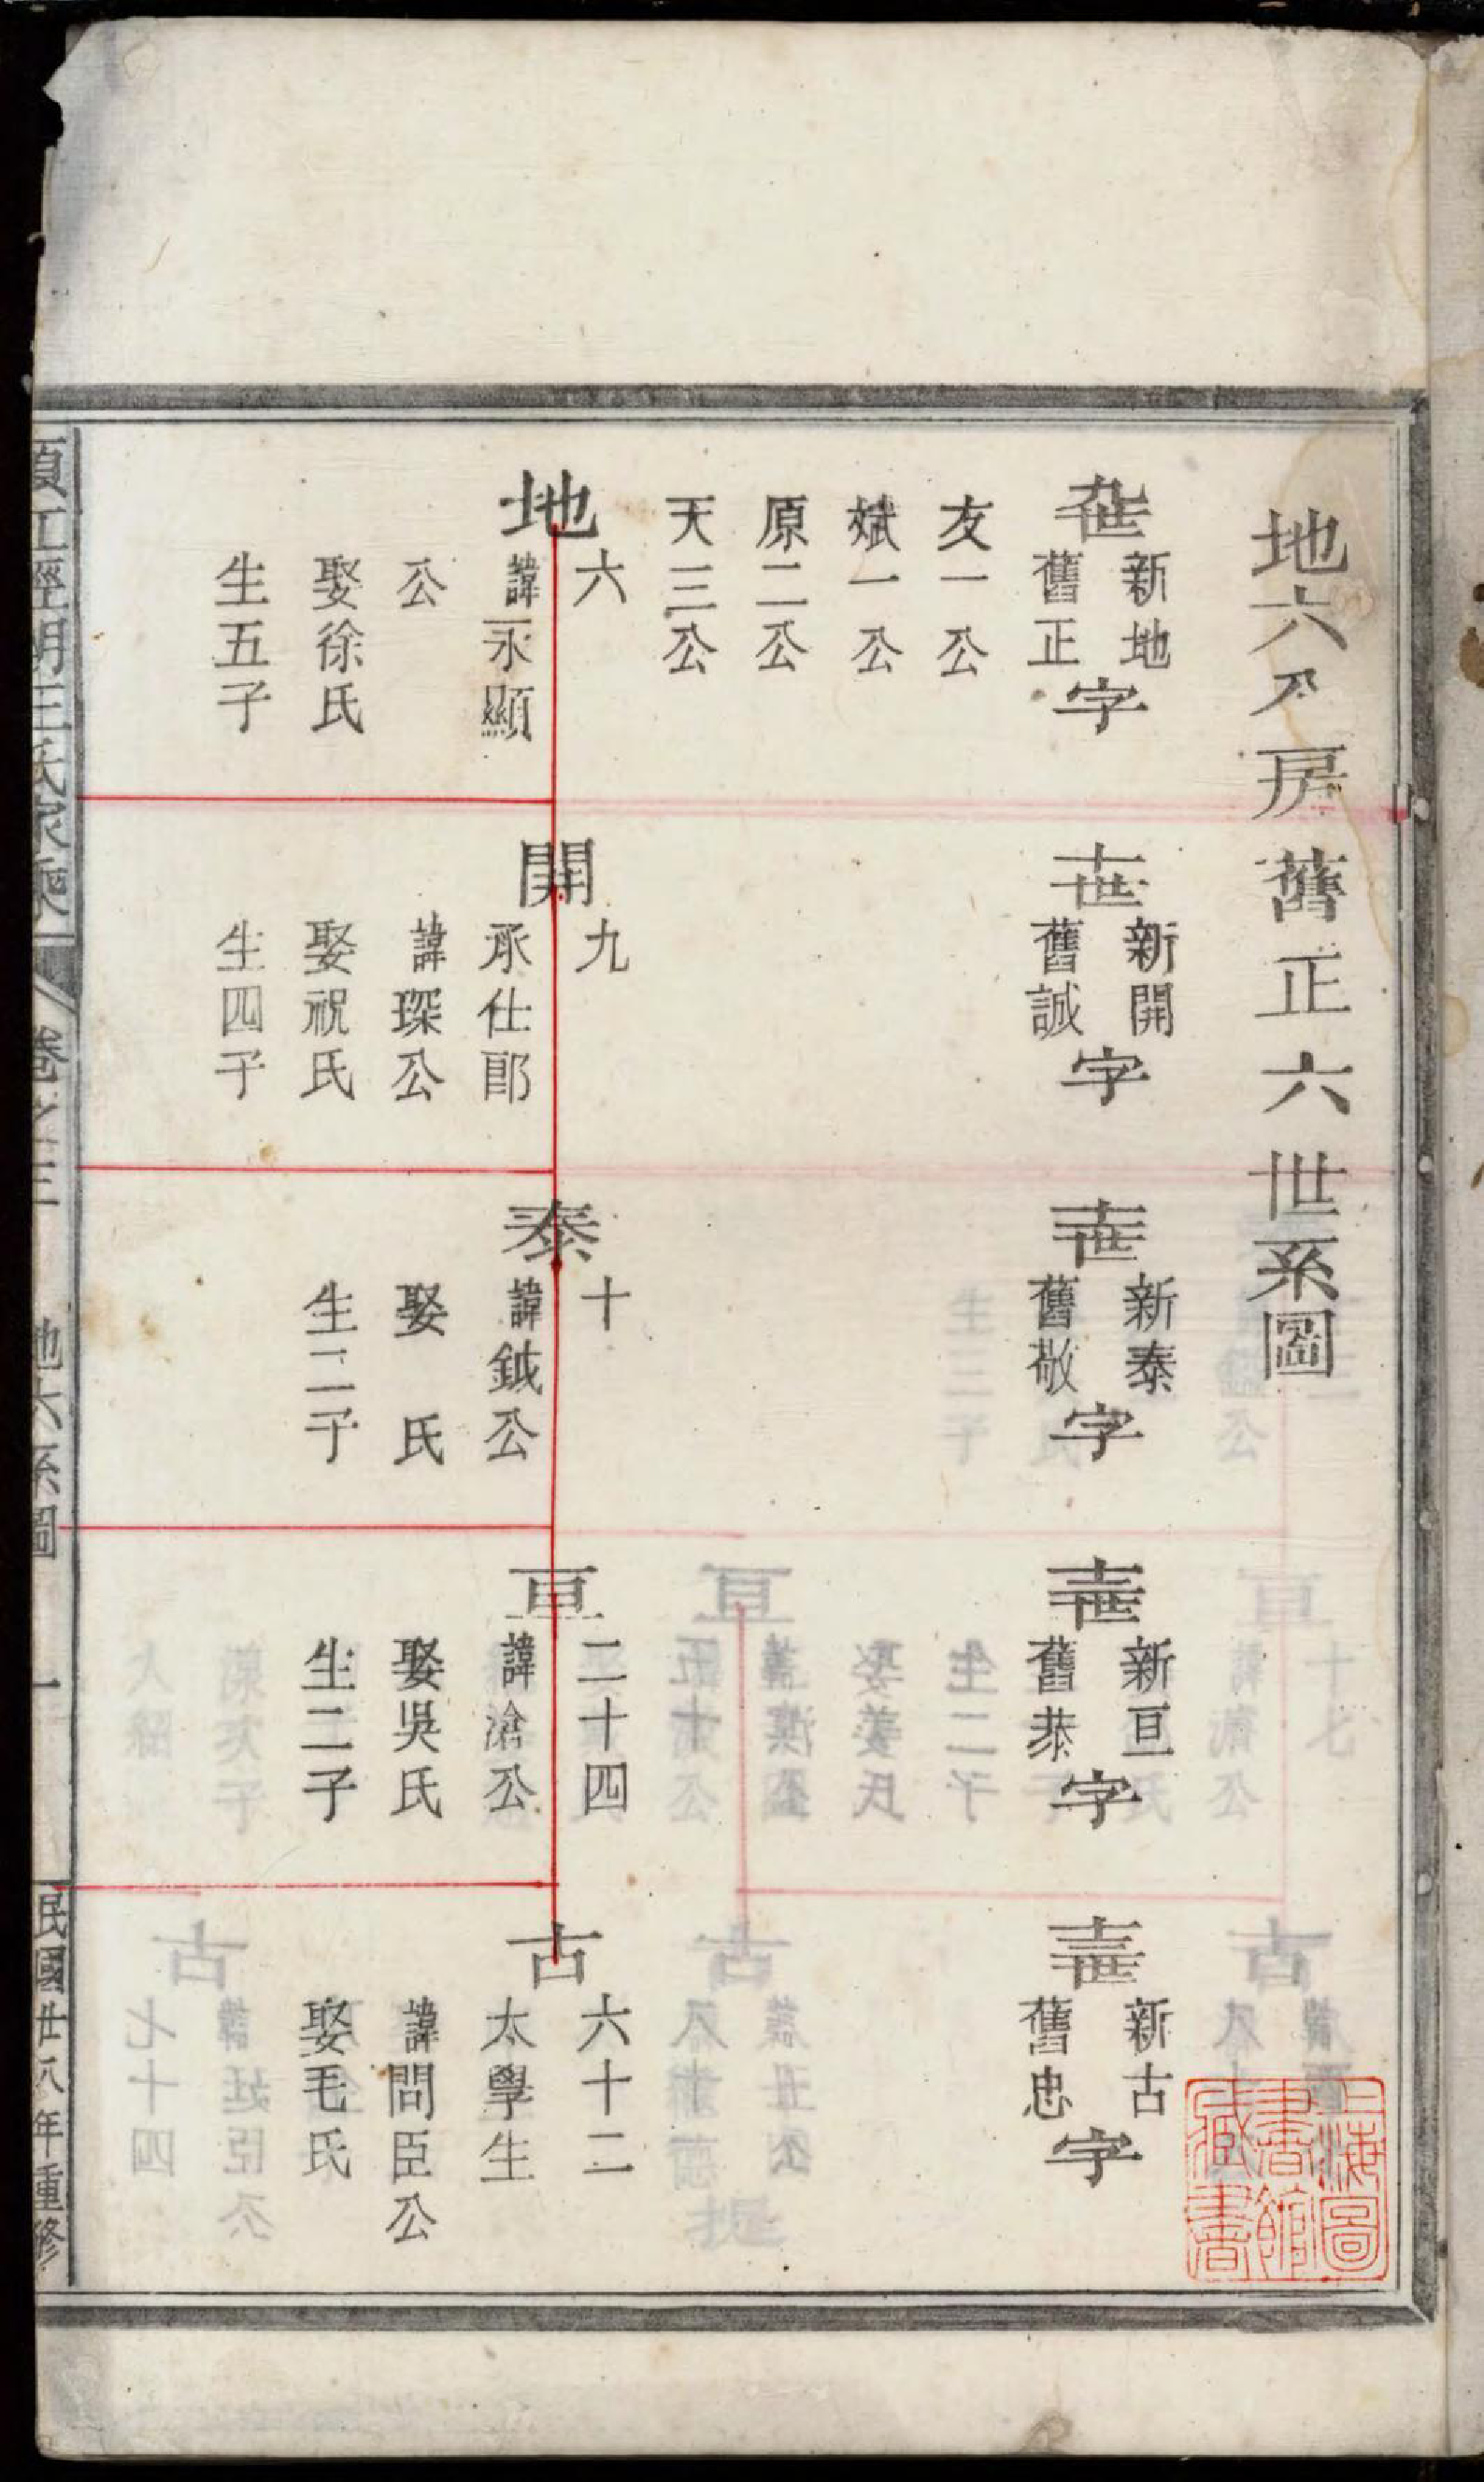 地六公房舊正六世系圖
新地
舊正
字
友一公
斌一公
原二公
天三公
地
六
諱永顯
公
娶徐氏
生五子
十世
新開
舊誠
字
開
九
承仕郎
諱琛公
娶祝氏
生四子
十一世
新泰
舊敬
字
泰
十
諱鉞公
娶 氏
生二子
十二世
新亘
舊恭
字
亘
二十四
諱滄公
娶吳氏
生二子
十三世
新古
舊忠
字
古
六十二
太學生
諱問臣公
娶毛氏
上海圖書館藏書
王氏家乘
卷之三
地六系圖
一
民國廿八年重修